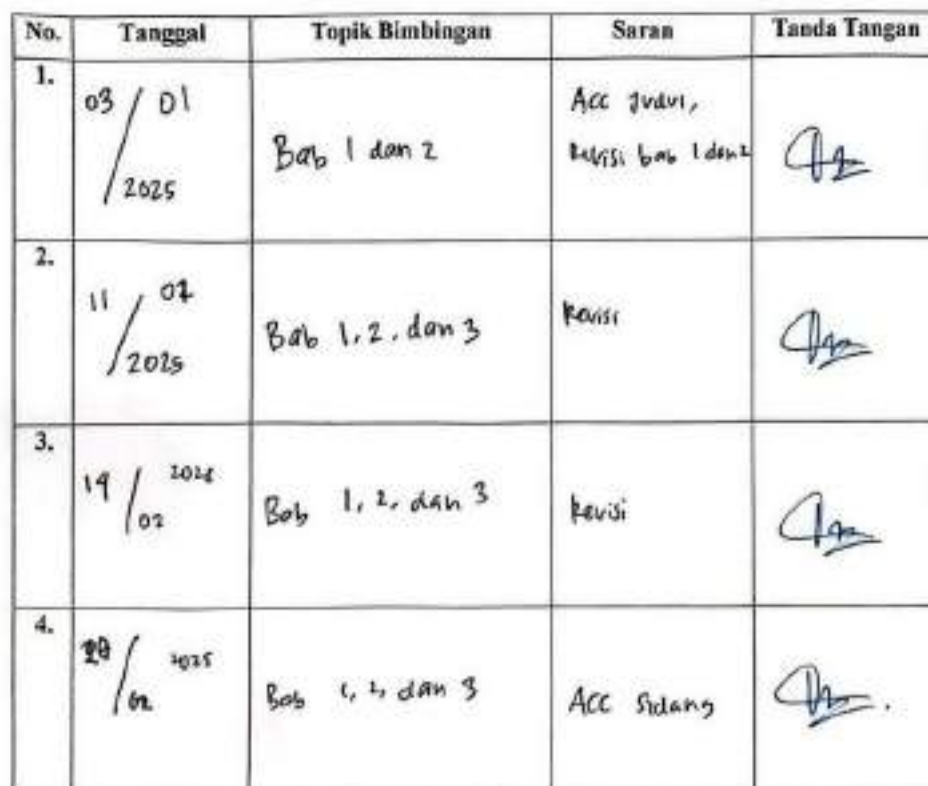 No. Tanggal Topik Bimbingan Saran Tanda Tangan
1. 03 / 01 2025 Bab 1 dan 2 ACC Judul,
Revisi bab 1 dan 2
2. 11 / 02 2025 Bab 1, 2, dan 3 Revisi
3. 19 / 02 2025 Bab 1, 2, dan 3 Revisi
4. / 02 2025 Bab 1, 2, dan 3 ACC Sidang